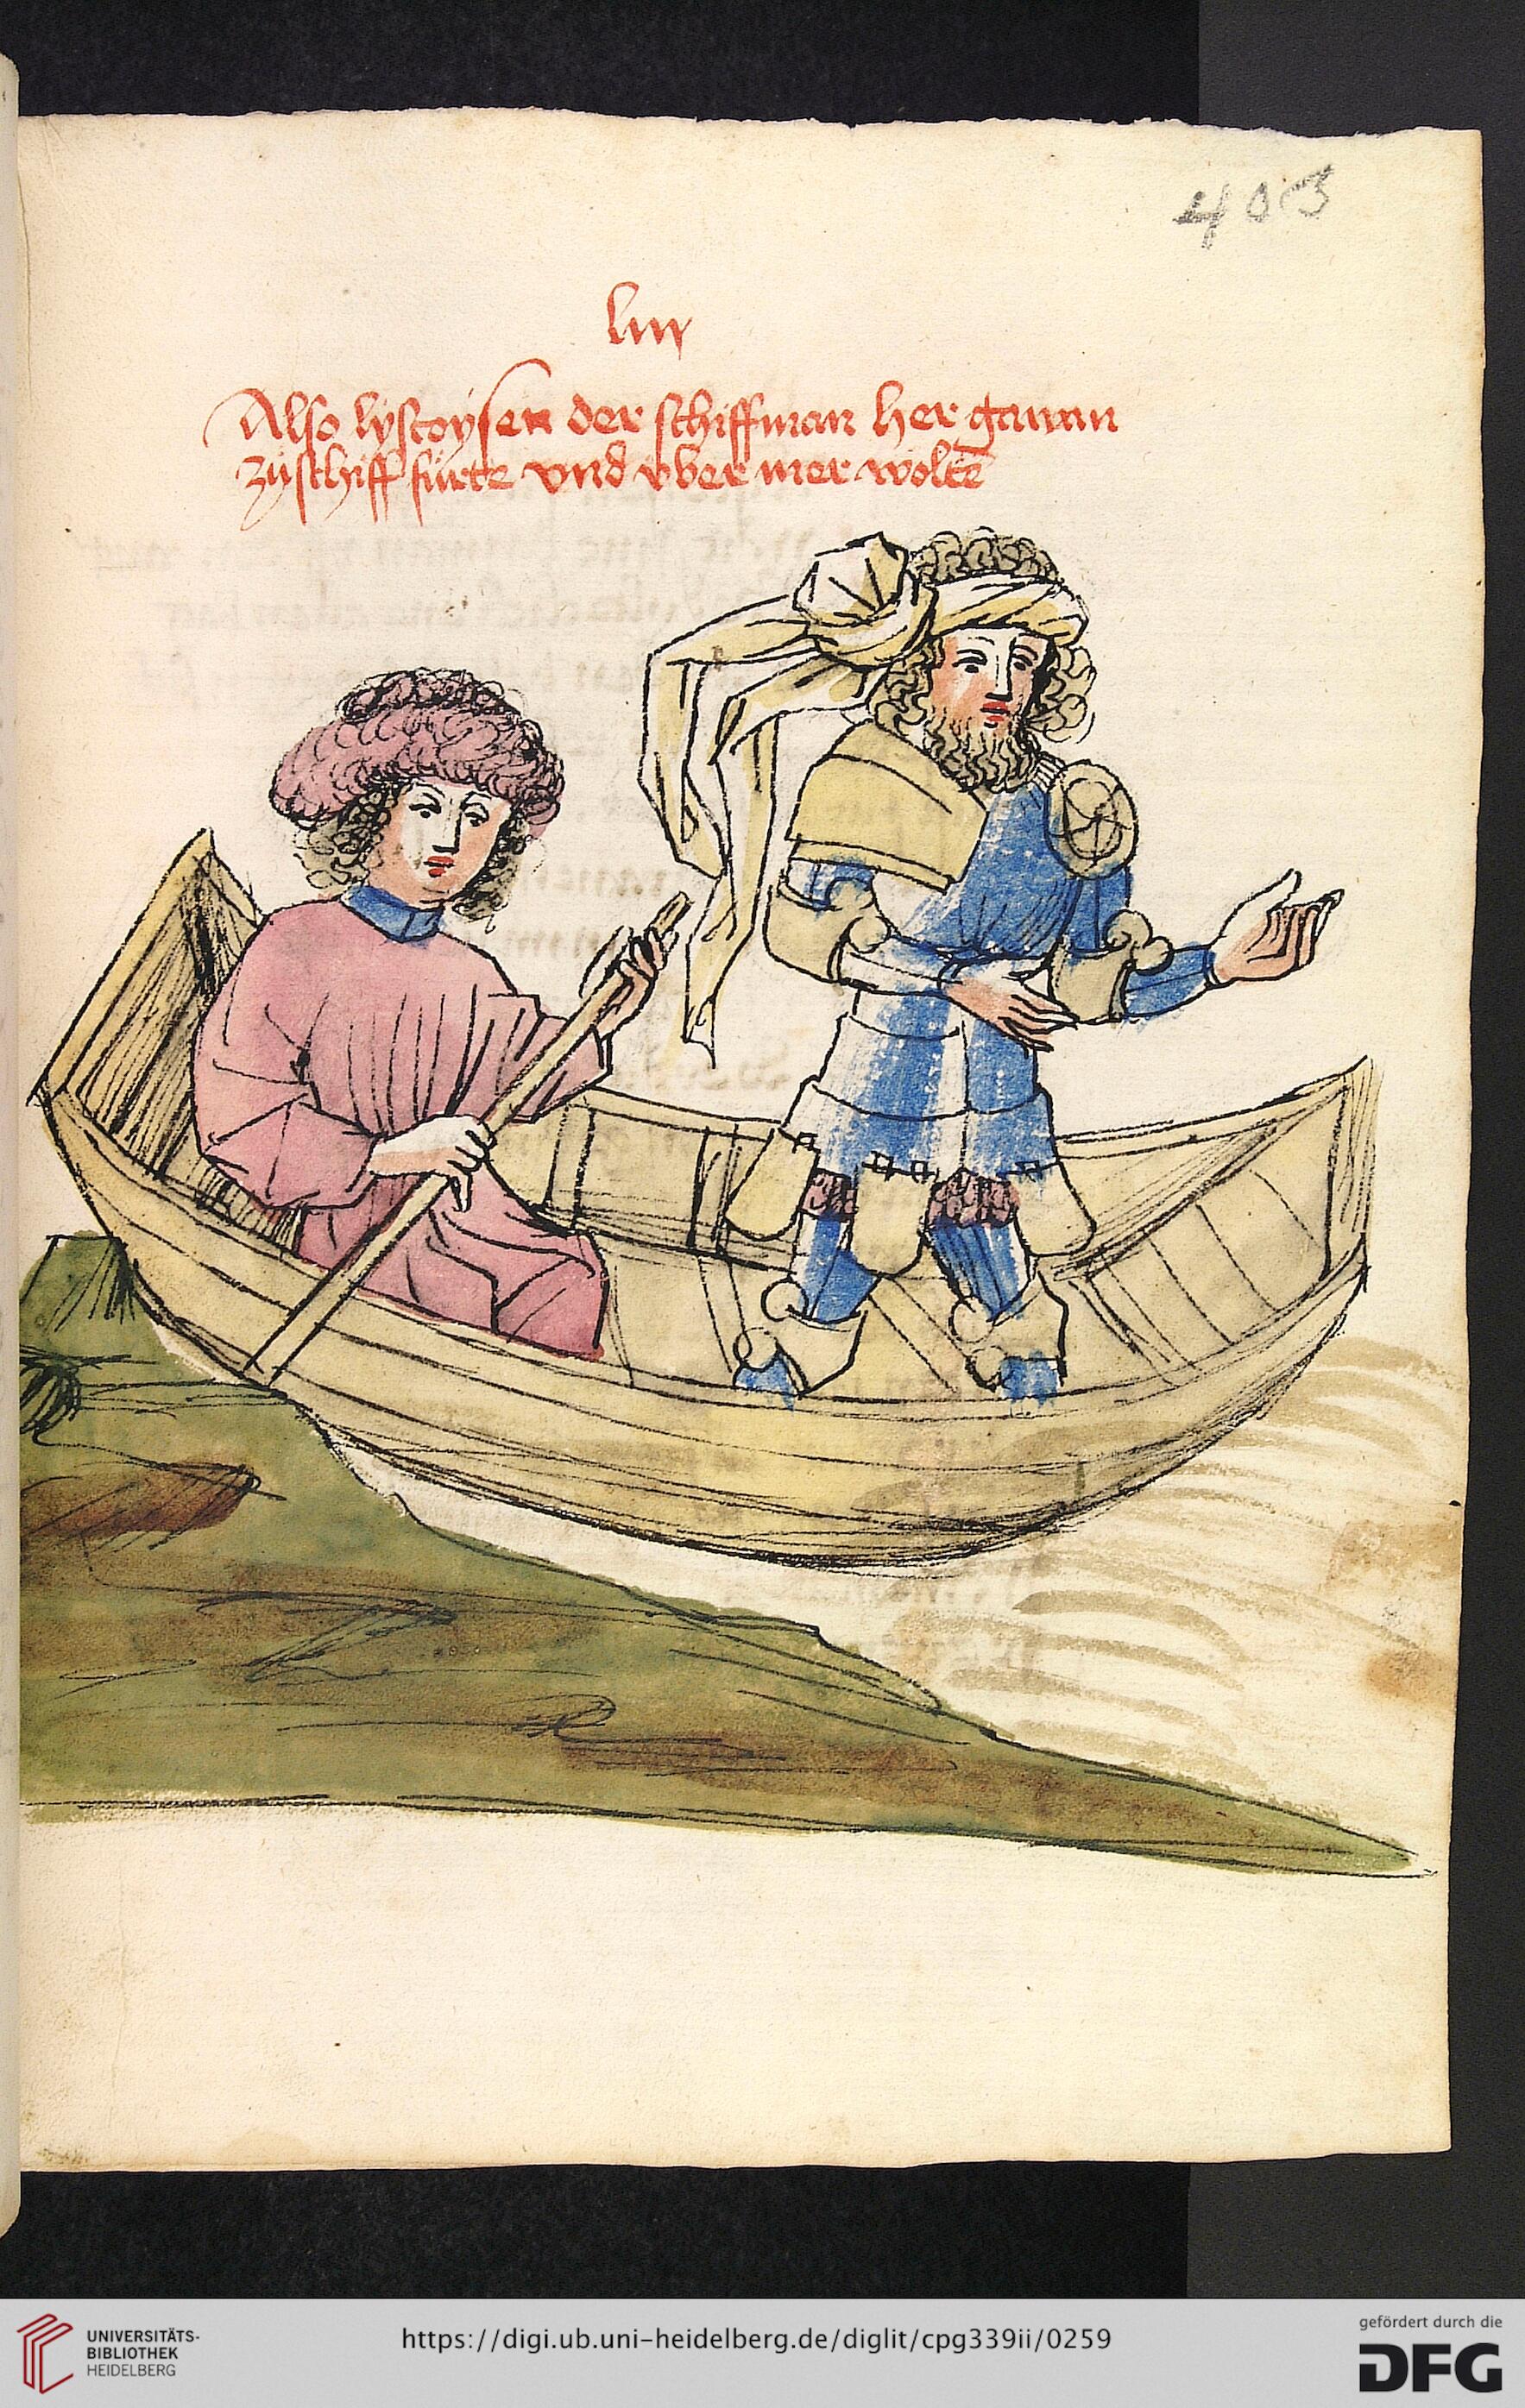 403
liiij
Also lyscoysen der schiffman her gawan
zü schiff fürte vnd vber mer wolte
UNIVERSITÄTS-
BIBLIOTHEK
HEIDELBERG
https://digi.ub.uni-heidelberg.de/diglit/cpg339ii/0259
gefördert durch die
DFG